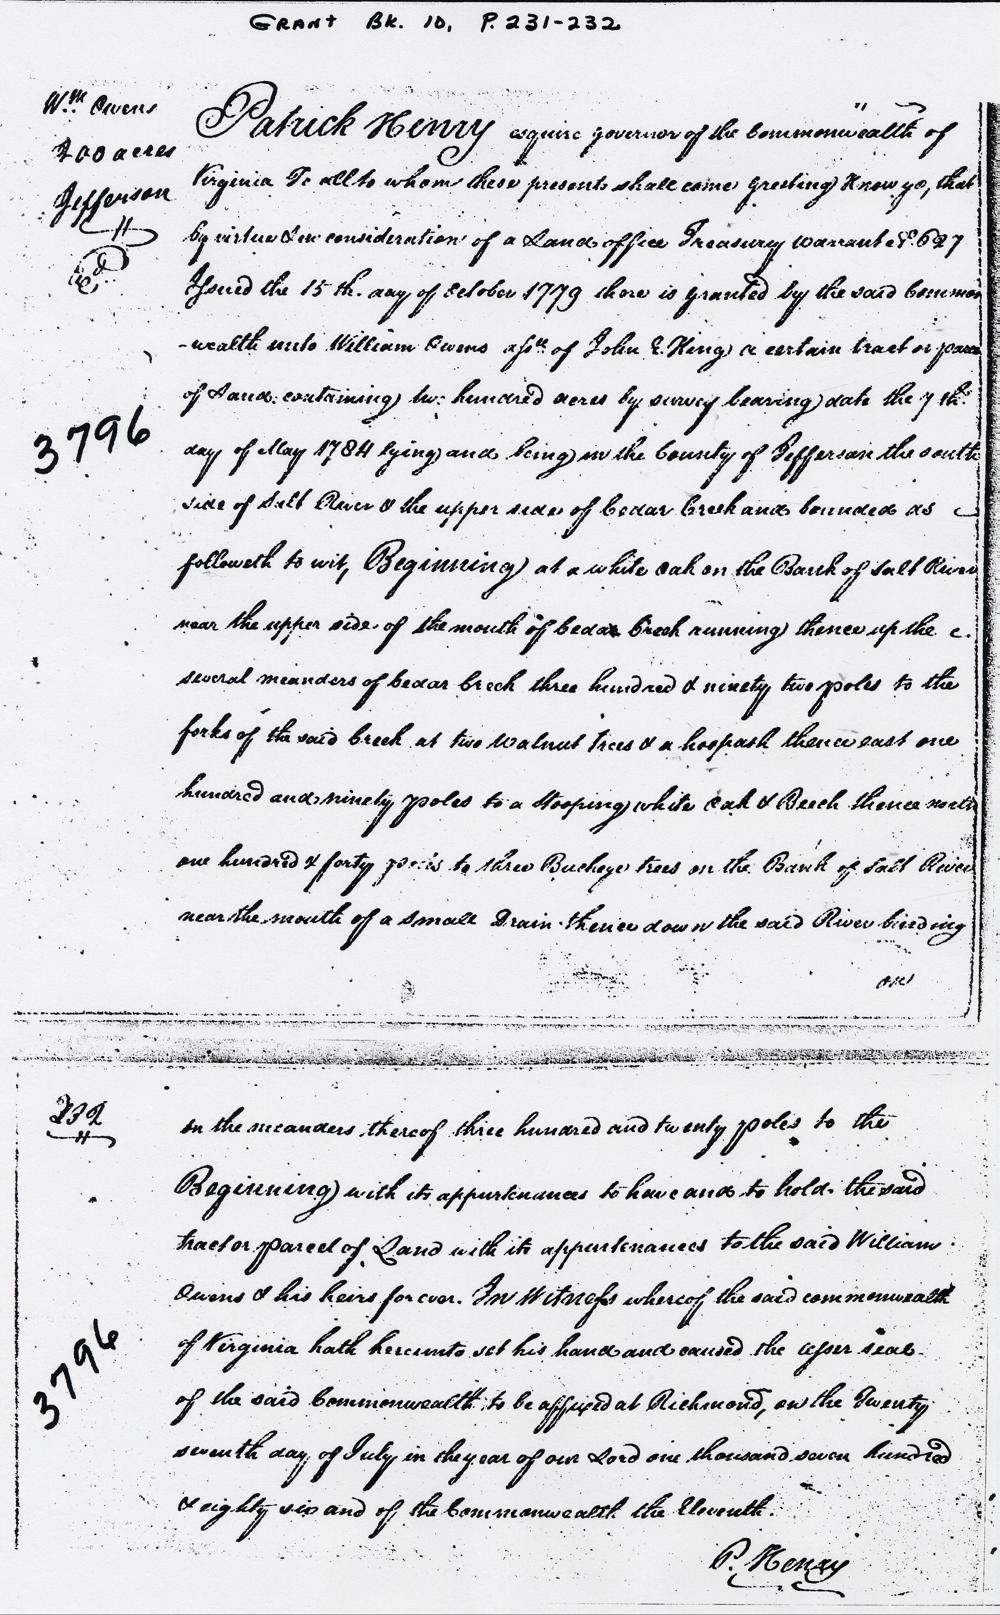 GRANT BK. 10, P. 231-232
Wm. Owens
200 acres
Jefferson
3796
Patrick Henry esquire governor of the Commonwealth of
Virginia To all to whom these presents shall come greeting Know ye, that
by virtue & in consideration of a Land office Treasury warrant No. 627
Issued the 15th. day of October 1779 there is granted by the said Common
-wealth unto William Owens assee. of John E. King a certain tract or parcel
of Land containing two hundred acres by survey bearing date the 7th.
day of May 1784 lying and being in the County of Jefferson the south
side of Salt River & the upper side of Cedar Creek and bounded as
followeth to wit, Beginning at a white oak on the Bank of Salt River
near the upper side of the mouth of Cedar Creek running thence up the
several meanders of Cedar Creek three hundred & ninety two poles to the
forks of the said Creek at two Walnut trees & a hoopash thence east one
hundred and ninety poles to a Stooping white oak & Beech thence north
one hundred & forty poles to three Buckeye trees on the Bank of Salt River
near the mouth of a small Drain thence down the said River binding
on
232
on the meanders thereof three hundred and twenty poles to the
Beginning with its appurtenances to have and to hold the said
tract or parcel of Land with its appurtenances to the said William
Owens & his heirs forever. In Witness whereof the said commonwealth
of Virginia hath hereunto set his hand and caused the lesser seal
of the said Commonwealth to be affixed at Richmond, on the Twenty
seventh day of July in the year of our Lord one thousand seven hundred
& eighty six and of the Commonwealth the Eleventh.
P. Henry
3796